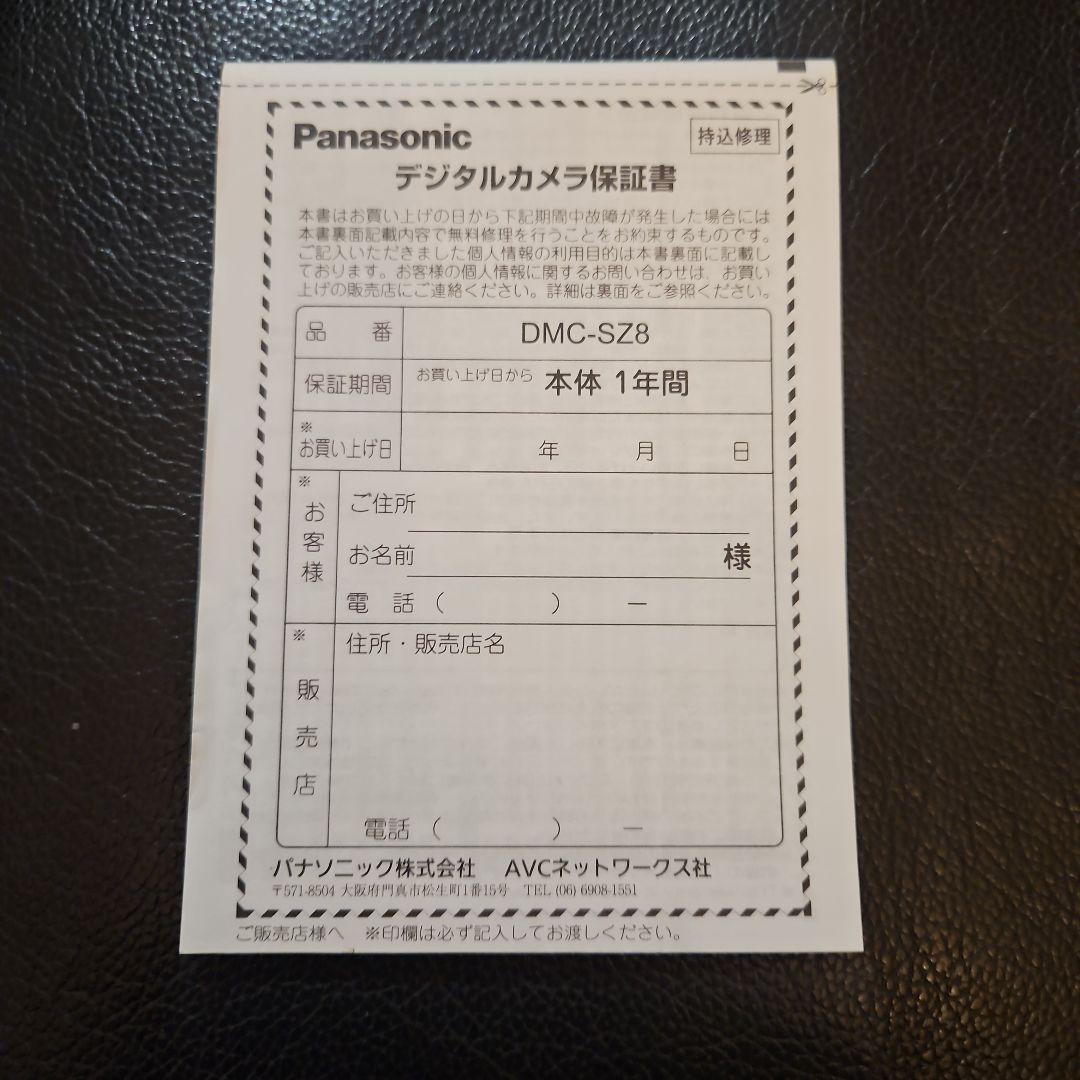 Panasonic
持込修理
デジタルカメラ保証書
本書はお買い上げの日から下記期間中故障が発生した場合には
本書裏面記載内容で無料修理を行うことをお約束するものです。
ご記入いただきました個人情報の利用目的は本書裏面に記載し
ております。お客様の個人情報に関するお問い合わせは、お買い
上げの販売店にご連絡ください。詳細は裏面をご参照ください。
品 番 DMC-SZ8
保証期間 お買い上げ日から 本体 1年間
※
お買い上げ日 年 月 日
※
お客様
ご住所
お名前 様
電 話 ( ) ー
※
販売店
住所・販売店名
電話 ( ) ー
パナソニック株式会社 AVCネットワークス社
〒571-8504 大阪府門真市松生町1番15号 TEL (06) 6908-1551
ご販売店様へ ※印欄は必ず記入してお渡しください。